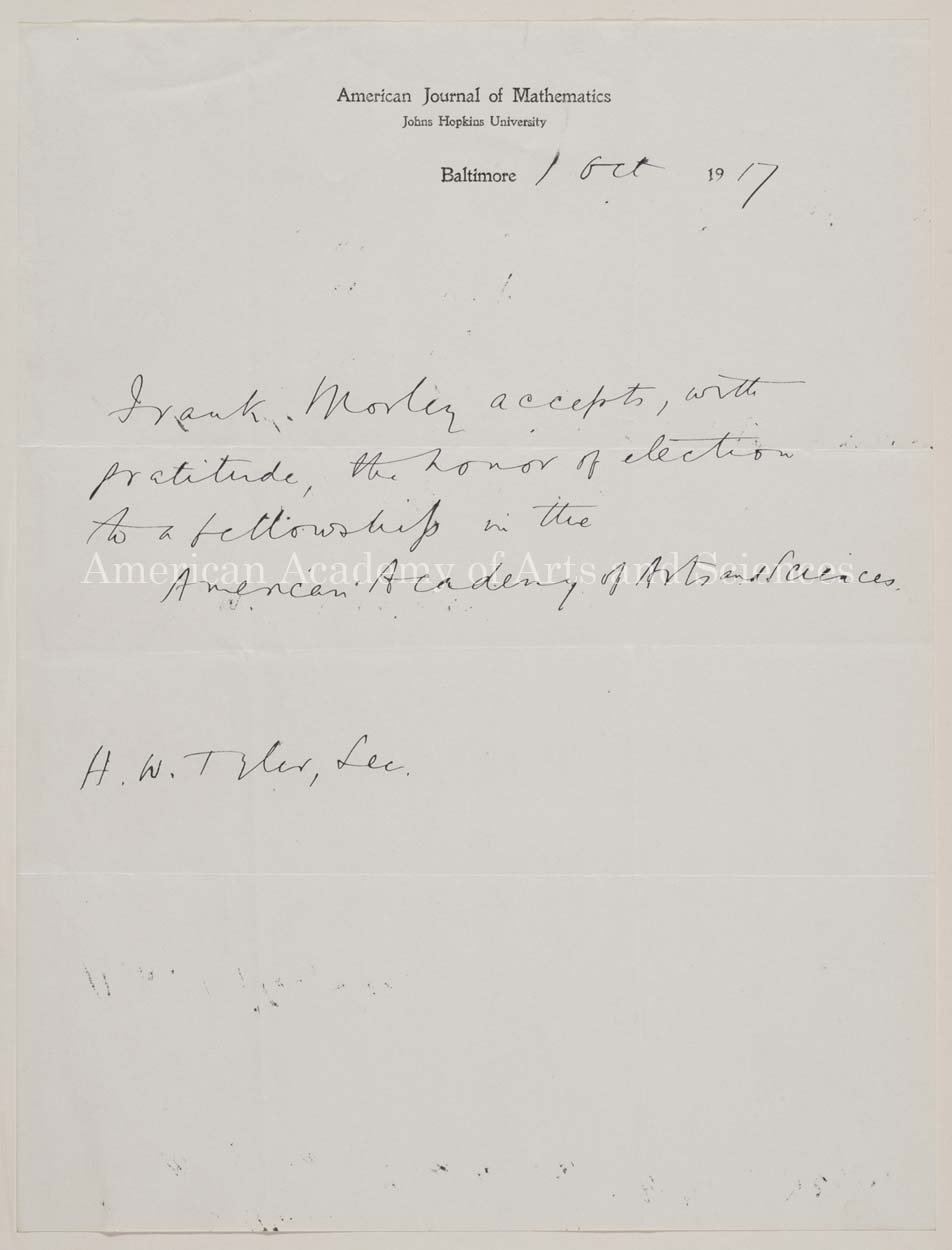 American Journal of Mathematics
Johns Hopkins University
Baltimore 1 Oct 1917
Frank Morley accepts, with
gratitude, the honor of election
to a fellowship in the
American Academy of Arts and Sciences
American Academy of Arts and Sciences.
H. W. Tyler, Sec.